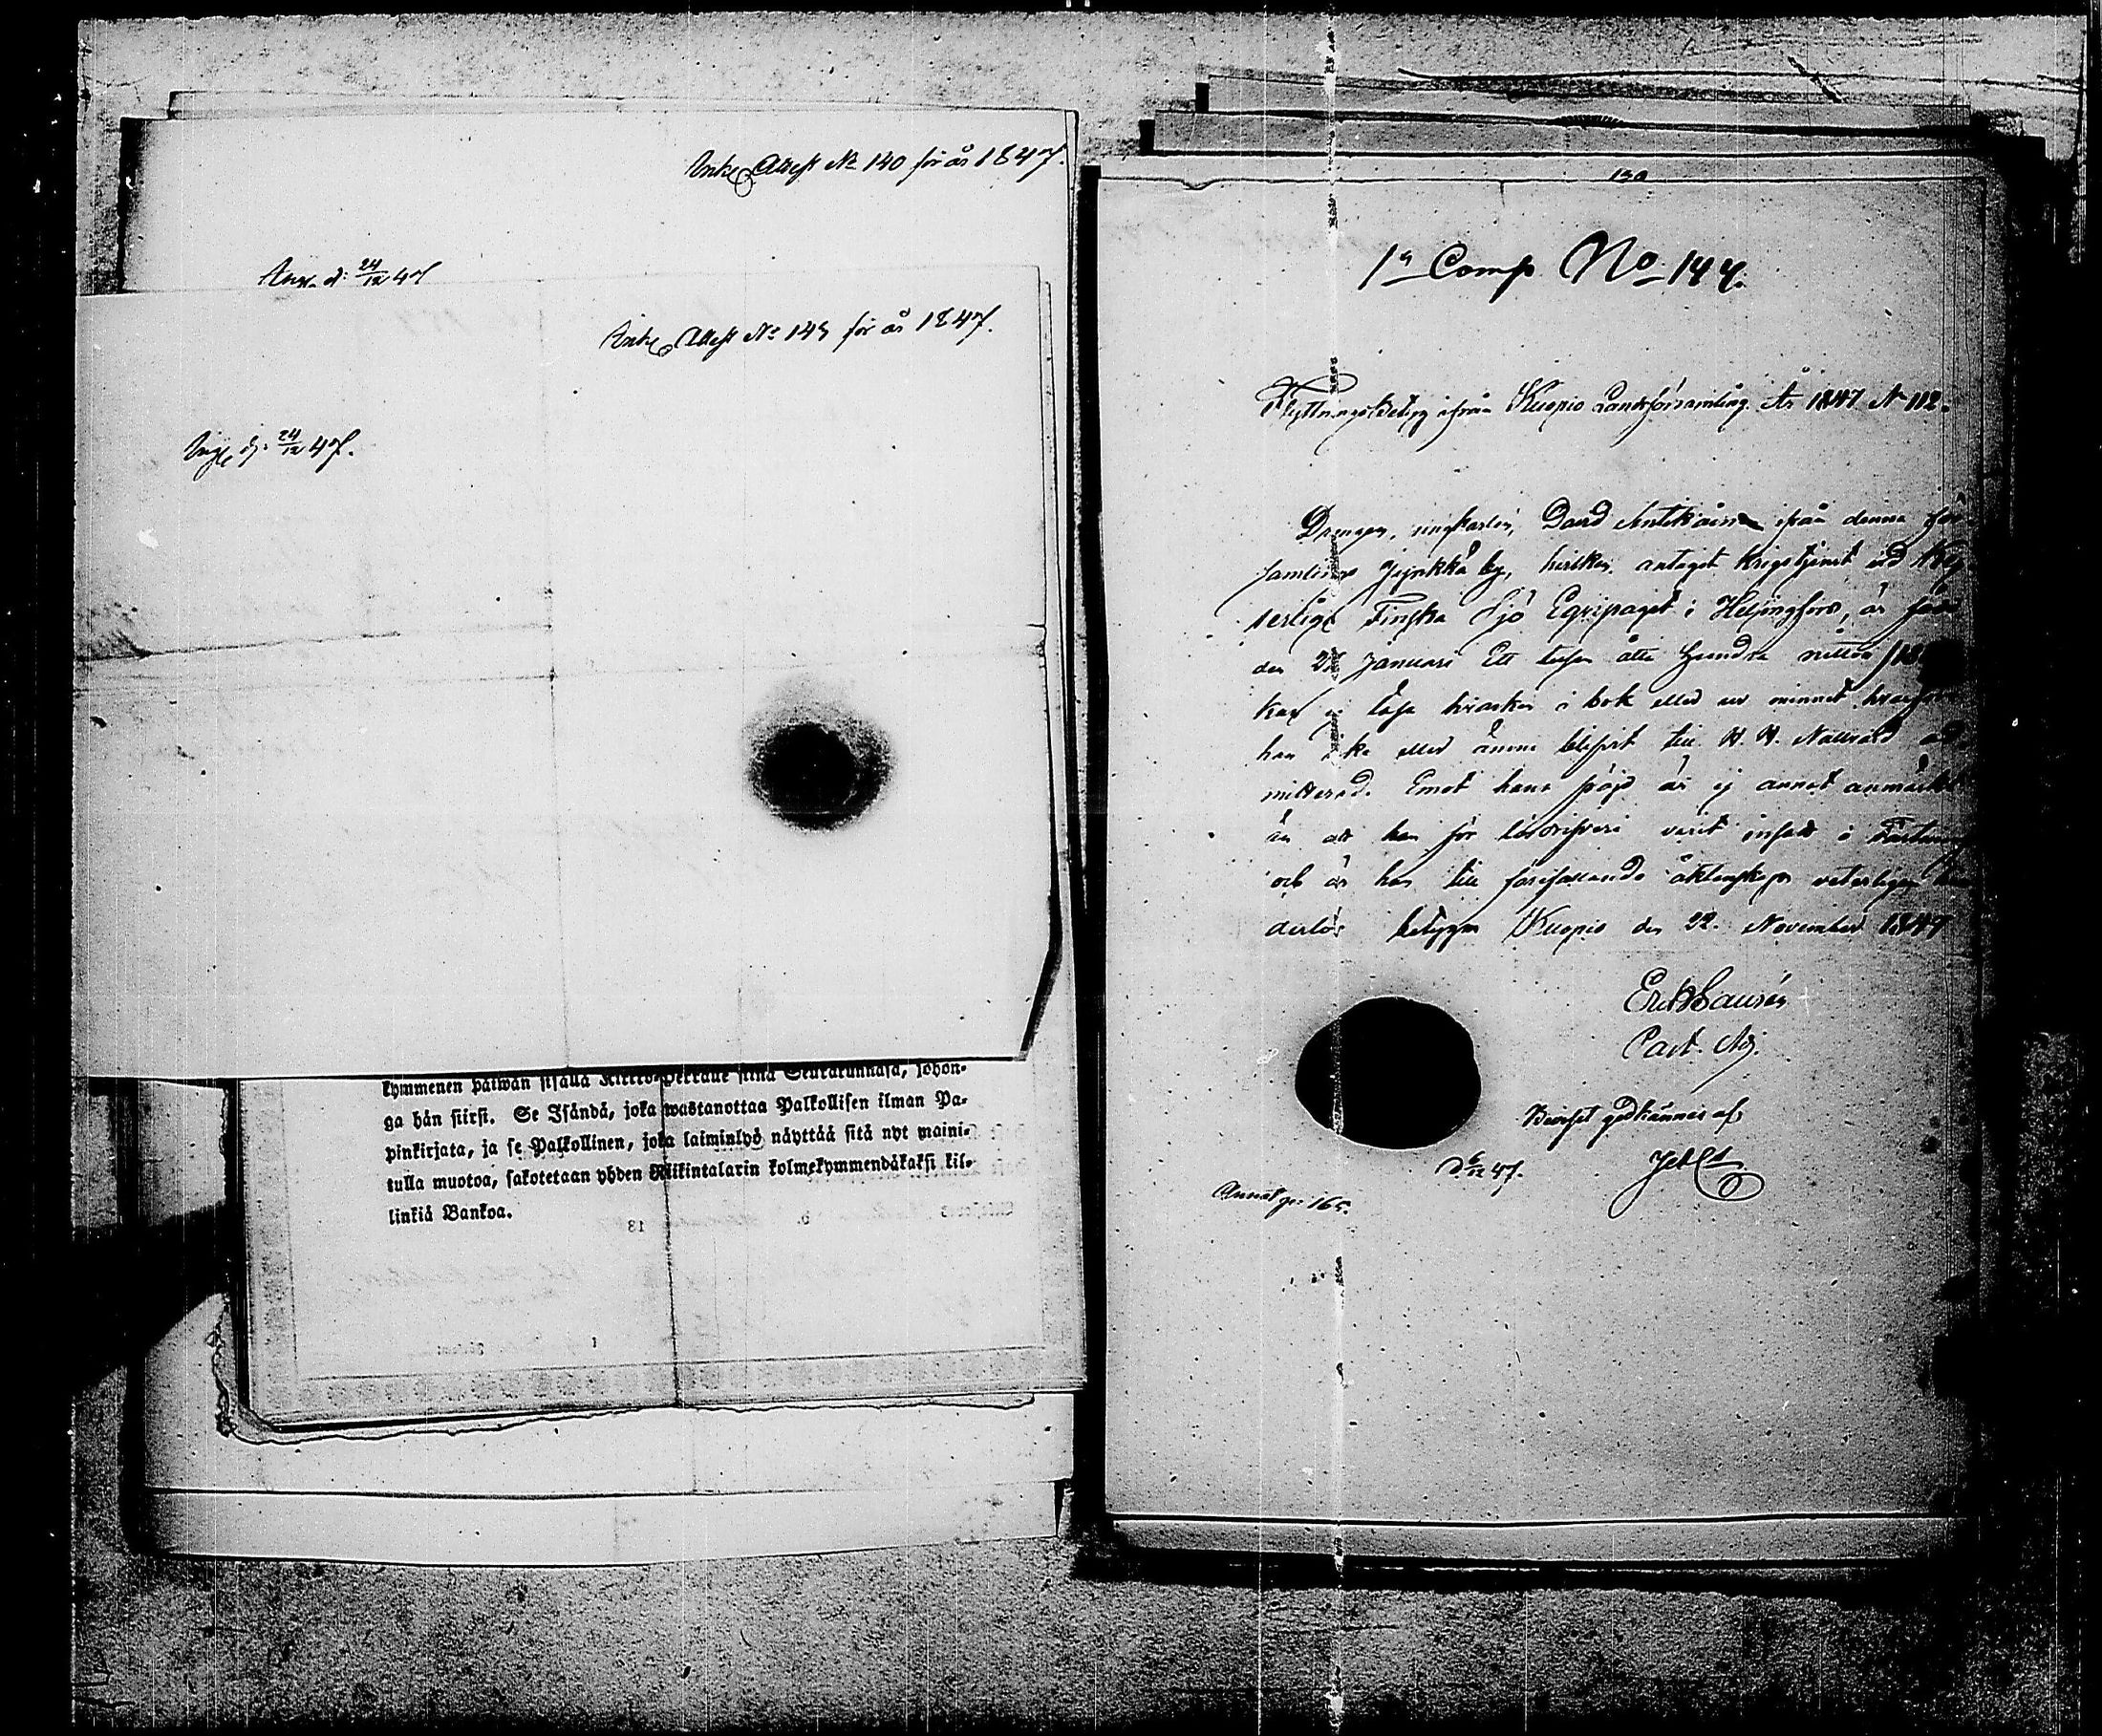 Attest No 140 för år 1847.
d: 24/12 47
Attest No 143 för år 1847.
d: 24/12 47.
kymmenen päiwän sisällä Kirkko-Herralle siinä Seurakunnasa, johon-
ga hän siirsi. Se Isändä, joka wastanottaa Palkollisen ilman Pa-
pinkirjata, ja se Palkollinen, joka laiminlyö näyttää sitä nyt maini-
tulla muotoa, sakotetaan yhden Riikintalarin kolmekymmendäkaksi kil-
linkiä Bankoa.
130
1a Comp No 144.
Flyttnings Betyg ifrån Kuopio Landsförsamling År 1847 No 112.
Drengen, ungkarlen, David Antikain ifrån denna för-
samlings by, hvilken antagit krigstjenst vid Kej-
serliga Finska Sjö Equipaget i Helsingfors, är född
den Januari Ett tusen åtta hundra nitton
kan ej läsa hvarken i bok eller ur minnet,
han icke eller ännu blifvit till H. H. Nattvard ad-
mitterad. Emot hans fräjd är ej annat anmärkt
än att han för lösdrifveri varit insatt i
och är han till förefallande äktenskap veterligen hin-
derlös betygar Kuopio den 22. November 1847
Past. Adj.
Beviset godkännes af
D. 6/12 47.
165.